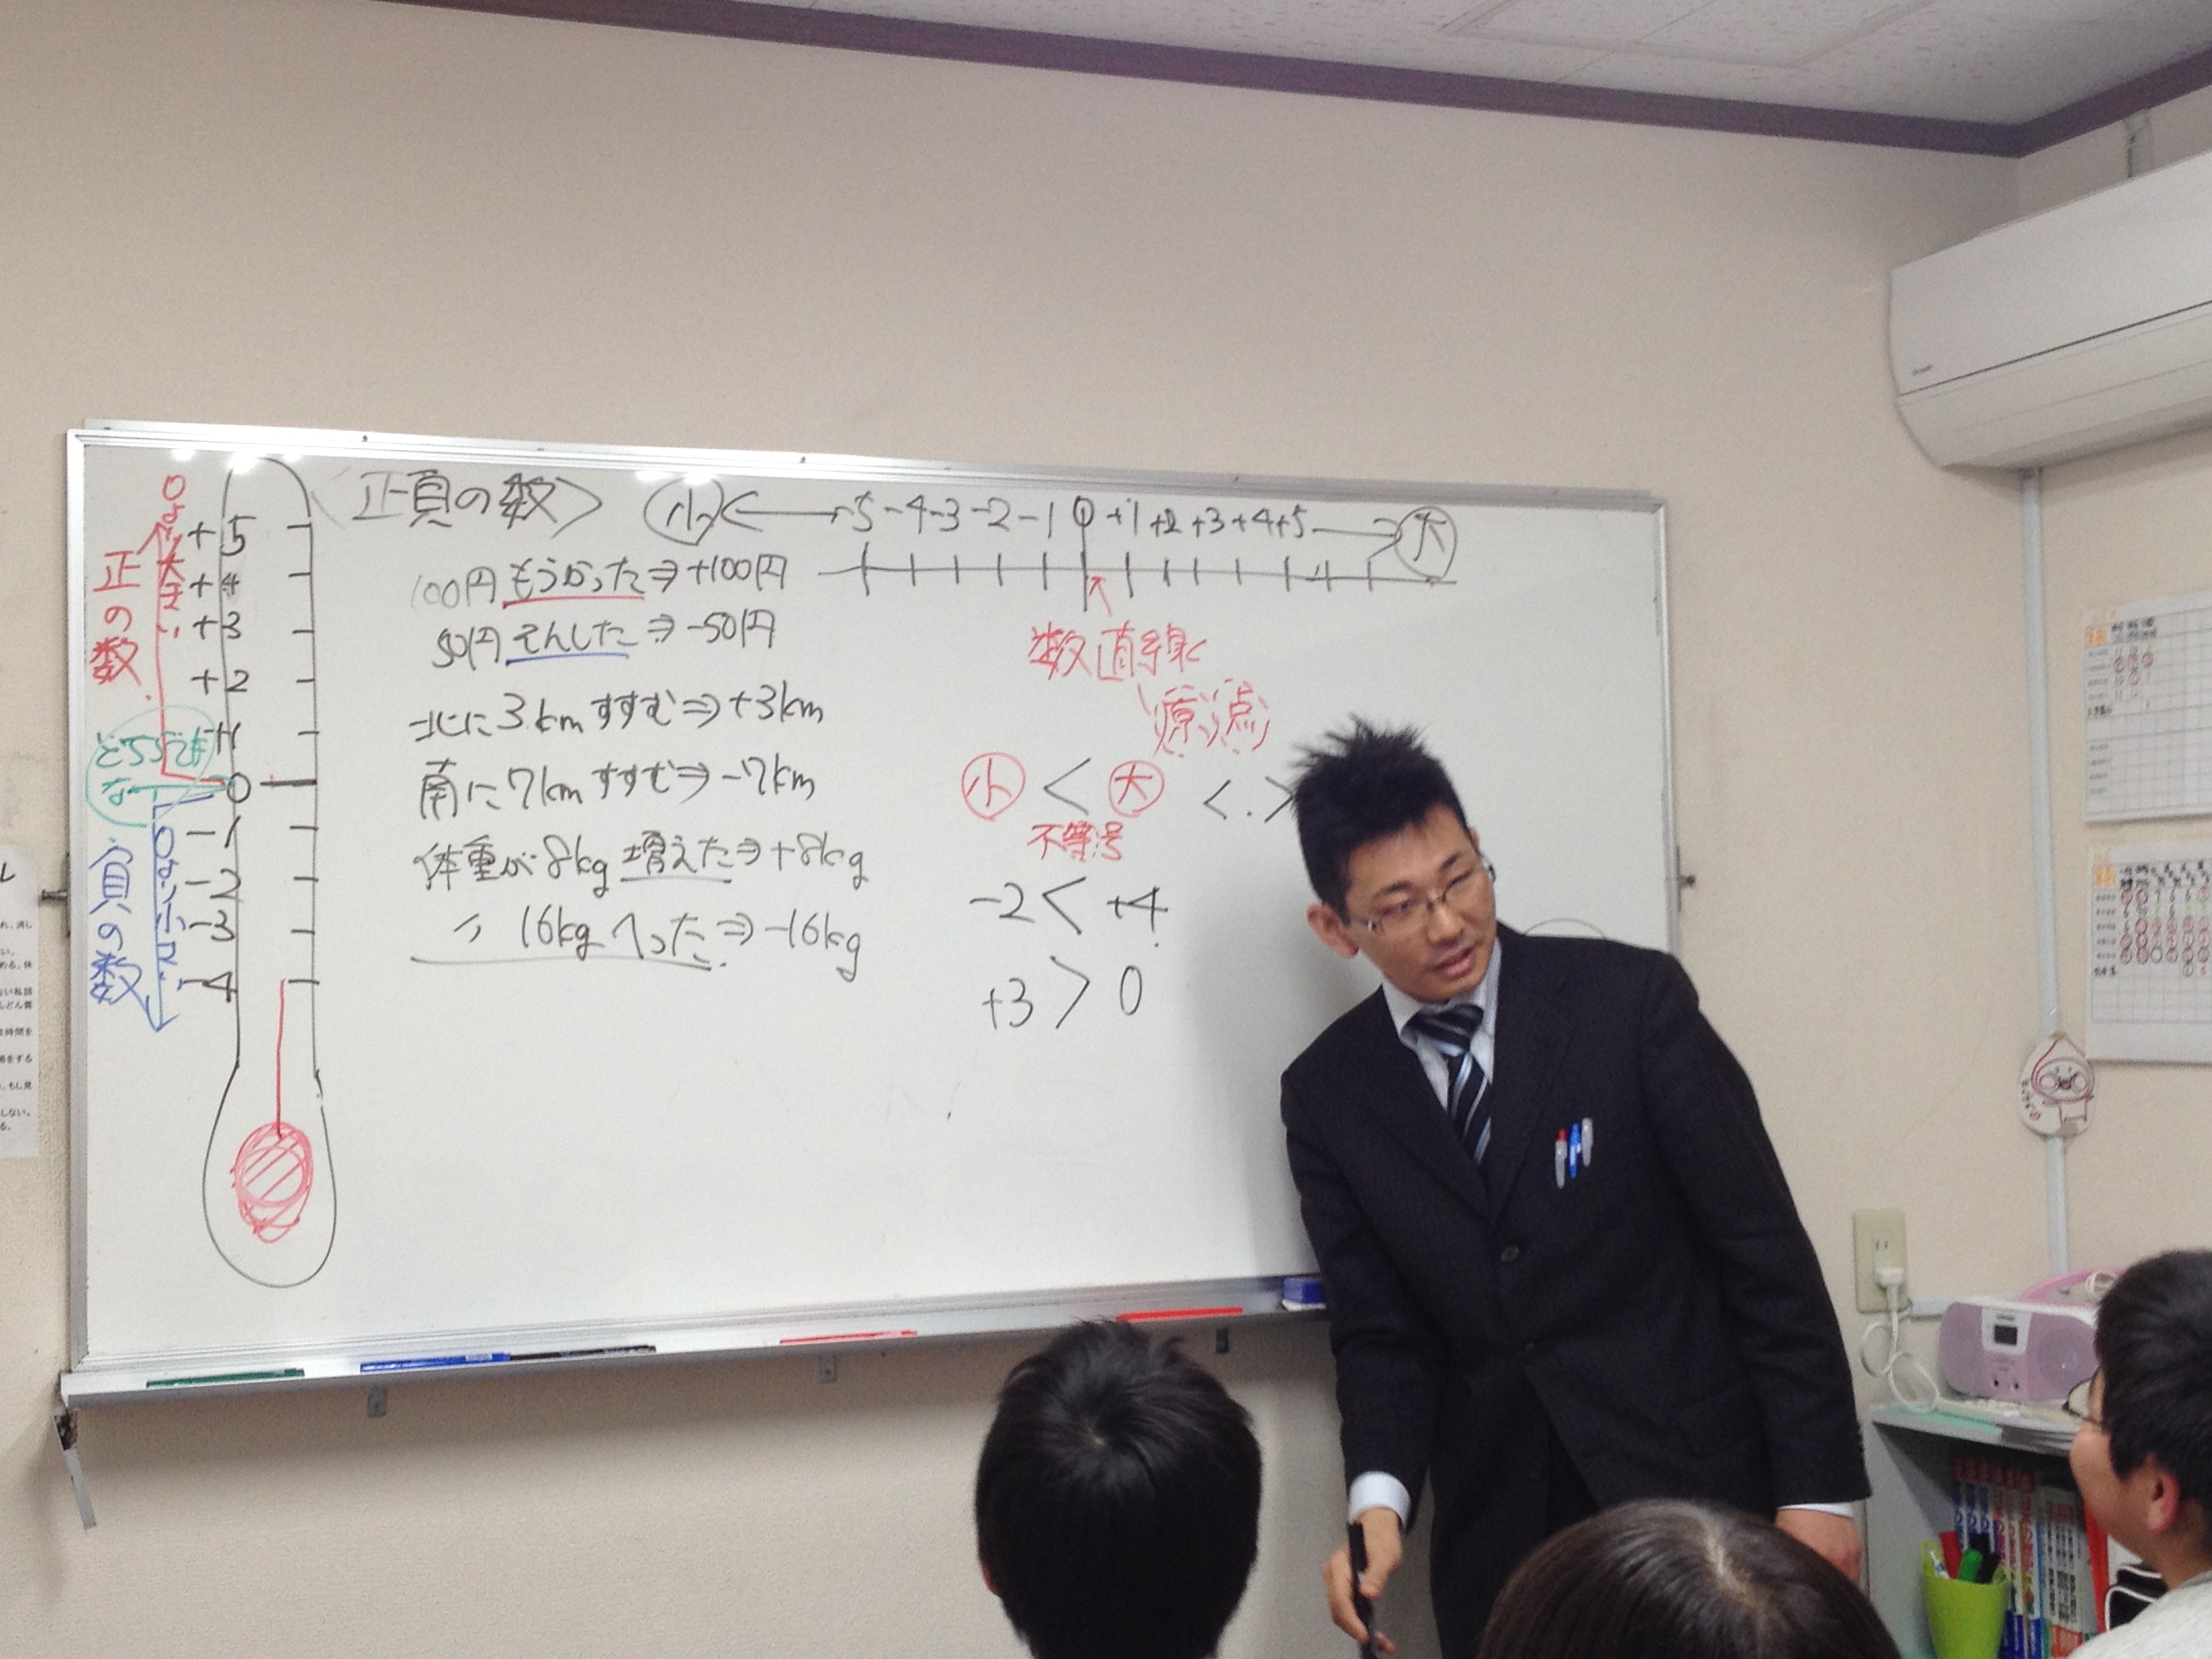 〈正負の数〉
小 ← -5 -4 -3 -2 -1 0 +1 +2 +3 +4 +5 → 大
100円もうかった⇒+100円
50円そんした⇒-50円
北に3kmすすむ⇒+3km
南に7kmすすむ⇒-7km
体重が8kg増えた⇒+8kg
〃 16kgへった⇒-16kg
数直線
原点
小 < 大
< . >
不等号
-2 < +4
+3 > 0
+5
+4
+3
+2
+1
0
-1
-2
-3
-4
正の数
0より大きい
どちらでもない
負の数
0より小さい